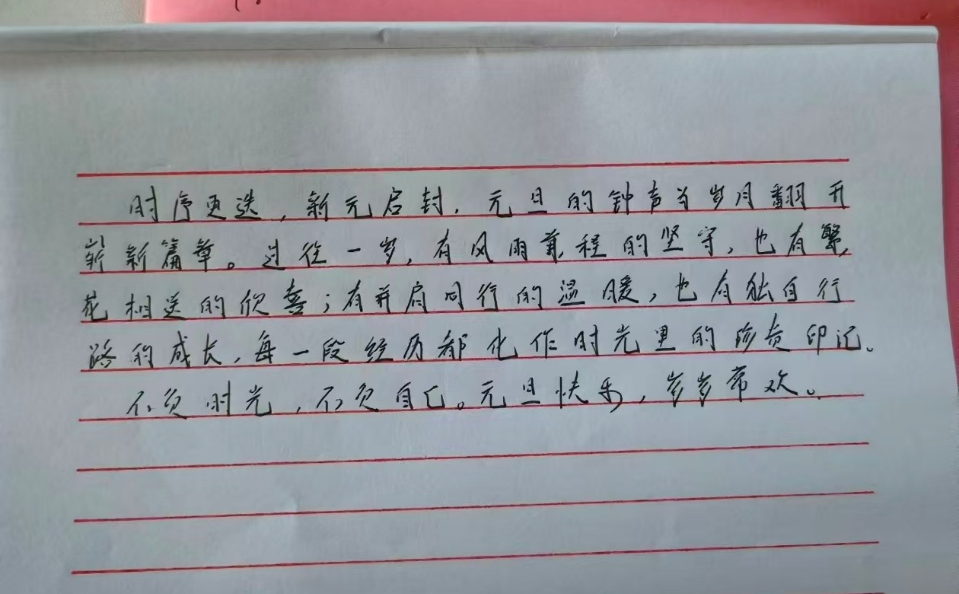 时序更迭，新元启封，元旦的钟声当岁月翻开
崭新篇章。过往一岁，有风雨兼程的坚守，也有繁
花相送的欣喜；有并肩同行的温暖，也有独自行
路的成长，每一段经历都化作时光里的珍贵印记。
不负时光，不负自己。元旦快乐，岁岁常欢。